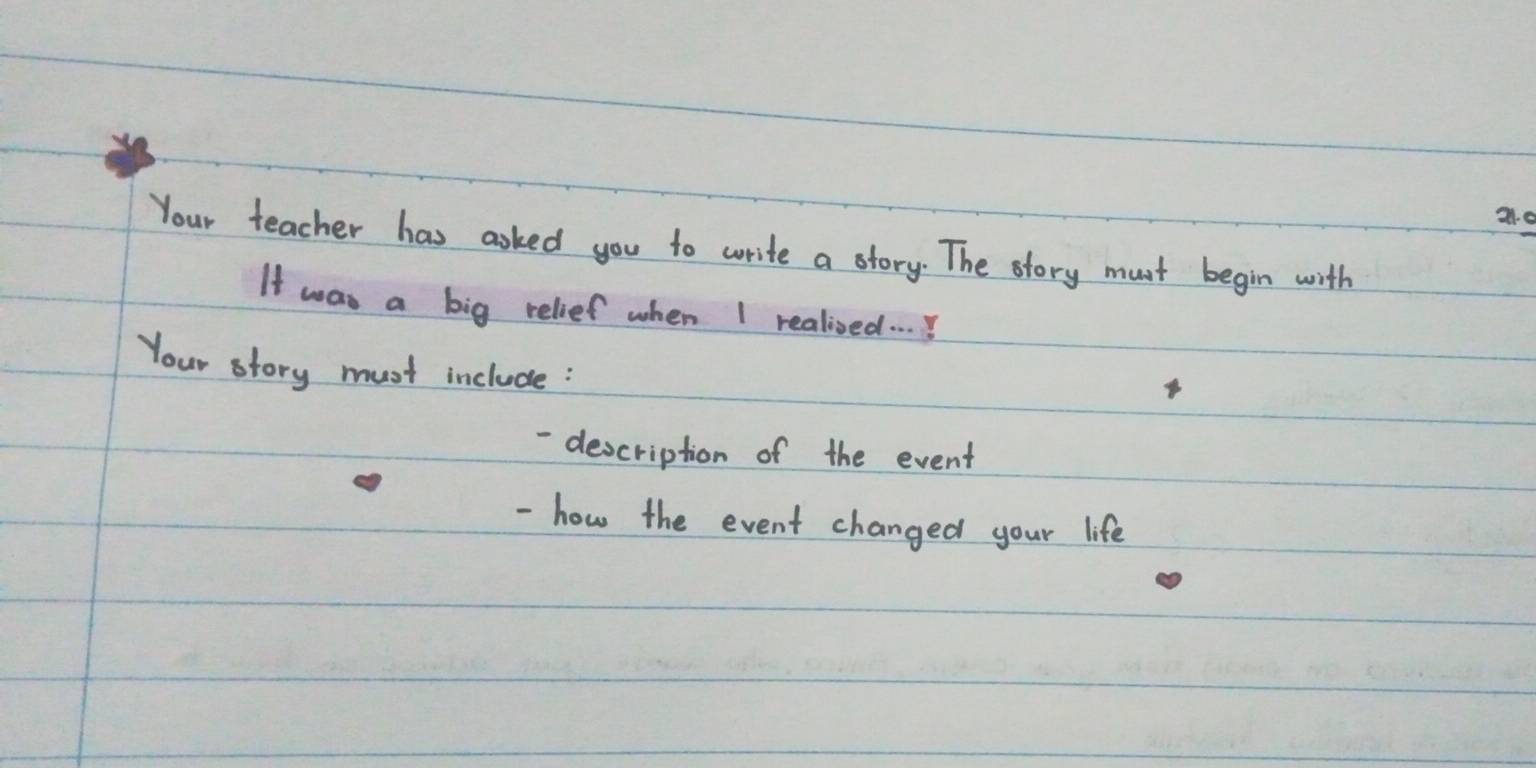 21.
Your teacher has asked you to write a story. The story must begin with
It was a big relief when I realised...!
Your story must include :
- description of the event
- how the event changed your life